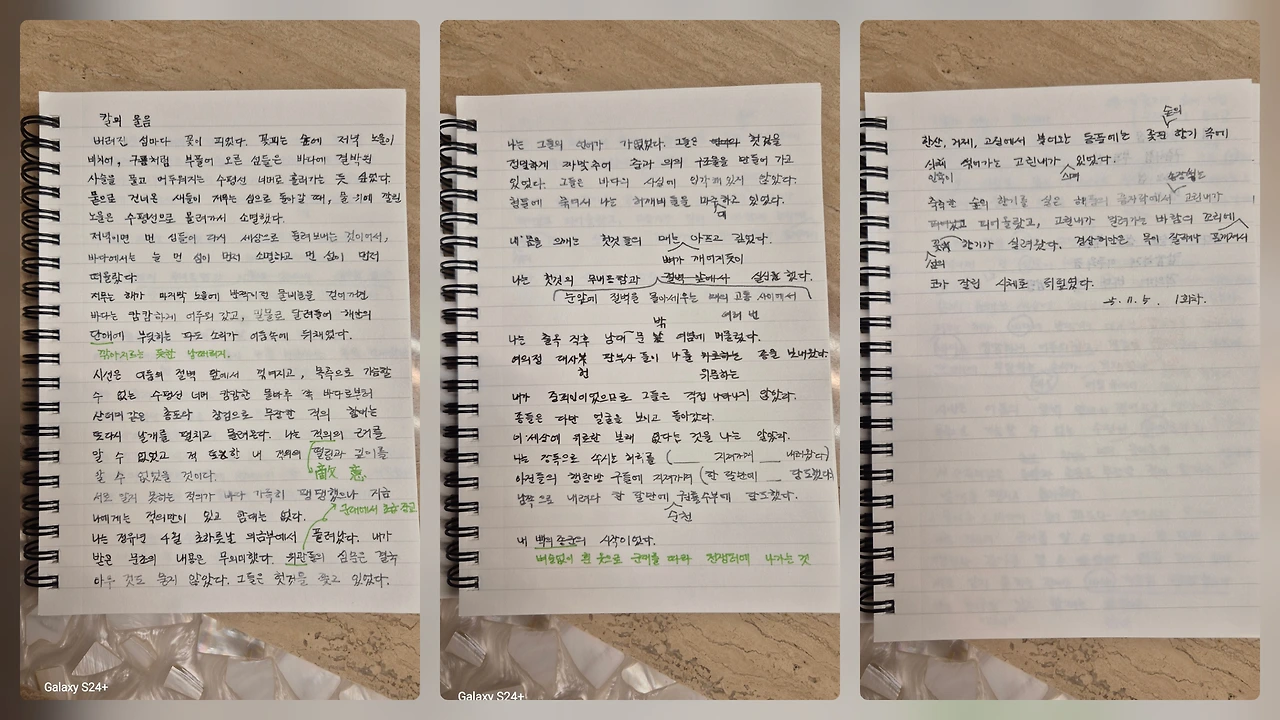 칼의 울음
버려진 섬마다 꽃이 피었다. 꽃피는 숲에 저녁 노을이
비치어, 구름처럼 부풀어 오른 섬들은 바다에 결박된
사슬을 풀고 어두워지는 수평선 너머로 흘러가는 듯 싶었다.
물으로 건너온 새들이 저무는 섬으로 돌아갈 때, 물 위에 깔린
노을은 수평선으로 몰려가서 소멸했다.
저녁이면 먼 섬들이 다시 세상으로 돌려보내는 것이어서,
바다에서는 늘 먼 섬이 먼저 소멸하고 먼 섬이 먼저
떠올랐다.
저무는 해가 마지막 노을에 반짝이던
바다는 캄캄하게 어두워 갔고, 밀물로 달려들어 해안의
단애에 부딪히는 파도 소리가 어둠속에 뒤채었다.
깎아지르는 듯한 낭떠러지.
시선은 어둠의 절벽 앞에서 꺾여지고, 목측으로 가늠할
수 없는 수평선 너머 캄캄한 물마루 쪽 바다로부터
산더미 같은 총포와 창검으로 무장한 적의 함대는
또다시 날개를 펼치고 몰려온다. 나는 적의의 근거를
알 수 없었고 적 또한 내 적의의 떨림과 깊이를
敵 意
알 수 없었을 것이다.
서로 알지 못하는 적의가 바다 가득히 팽팽했으나 지금
나에게는 적의만이 있고 함대는 없다.
나는 정유년 4월 초하룻날 의금부에서 풀려났다. 내가
받은 문초의 내용은 무의미했다. 위관들의 심문은 결국
아무 것도 묻지 않았다. 그들은 헛것을 쫓고 있었다.
나는 그들의 언어가 가엾었다. 그들은 헛것을
정밀하게 짜맞추어 충과 의의 구조물을 만들어 가고
있었다. 그들은 바다의 사실에 입각해 있지 않았다.
형틀에 묶여서 나는 허깨비들을 마주하고 있었다.
대
내 몸을 으깨는 헛것들의 매는 아프고 깊었다.
뼈가 깨어지듯이
나는 헛것의 무내용함과 절벽 앞에서 실신했다.
눈앞에 절벽을 몰아세우는 매의 고통 사이에서
여러 번
나는 출옥 직후 남대문 밖 여염에 머물렀다.
영의정 대사헌 판부사 들이 나를 위로하는 종을 보내왔다
위문하는
내가 중죄인이었으므로 그들은 직접 나타나지 않았다.
종들은 다만 얼굴을 보이고 돌아갔다.
이 세상에 위로란 본래 없다는 것을 나는 알았다.
나는 장독으로 쑤시는 허리를 ( 시골 아전들의 행랑방 구들에 지져가며 (한 달만에 당도했다)
남쪽으로 내려와 한 달만에 권률수부에 당도했다.
순천
내 백의종군의 시작이었다.
벼슬없이 흰 옷으로 군대를 따라 전쟁터에 나가는 것
숲의
한산, 거제, 고성에서 불어오는 동풍에는 꽃핀 향기 속에
시체 썩어가는 고린내가 있었다.
인육이 스며
축축한 숲의 향기를 실은 해풍의 끝자락에서 고린내가
피어올랐고, 고린내가 밀려가는 바람의 꼬리에
꽃의 향기가 실려왔다. 경상해안은 목이 잘리거나
섬의
코가 잘린 시체로 뒤덮였다.
1회차.
Galaxy S24+
Galaxy S24+